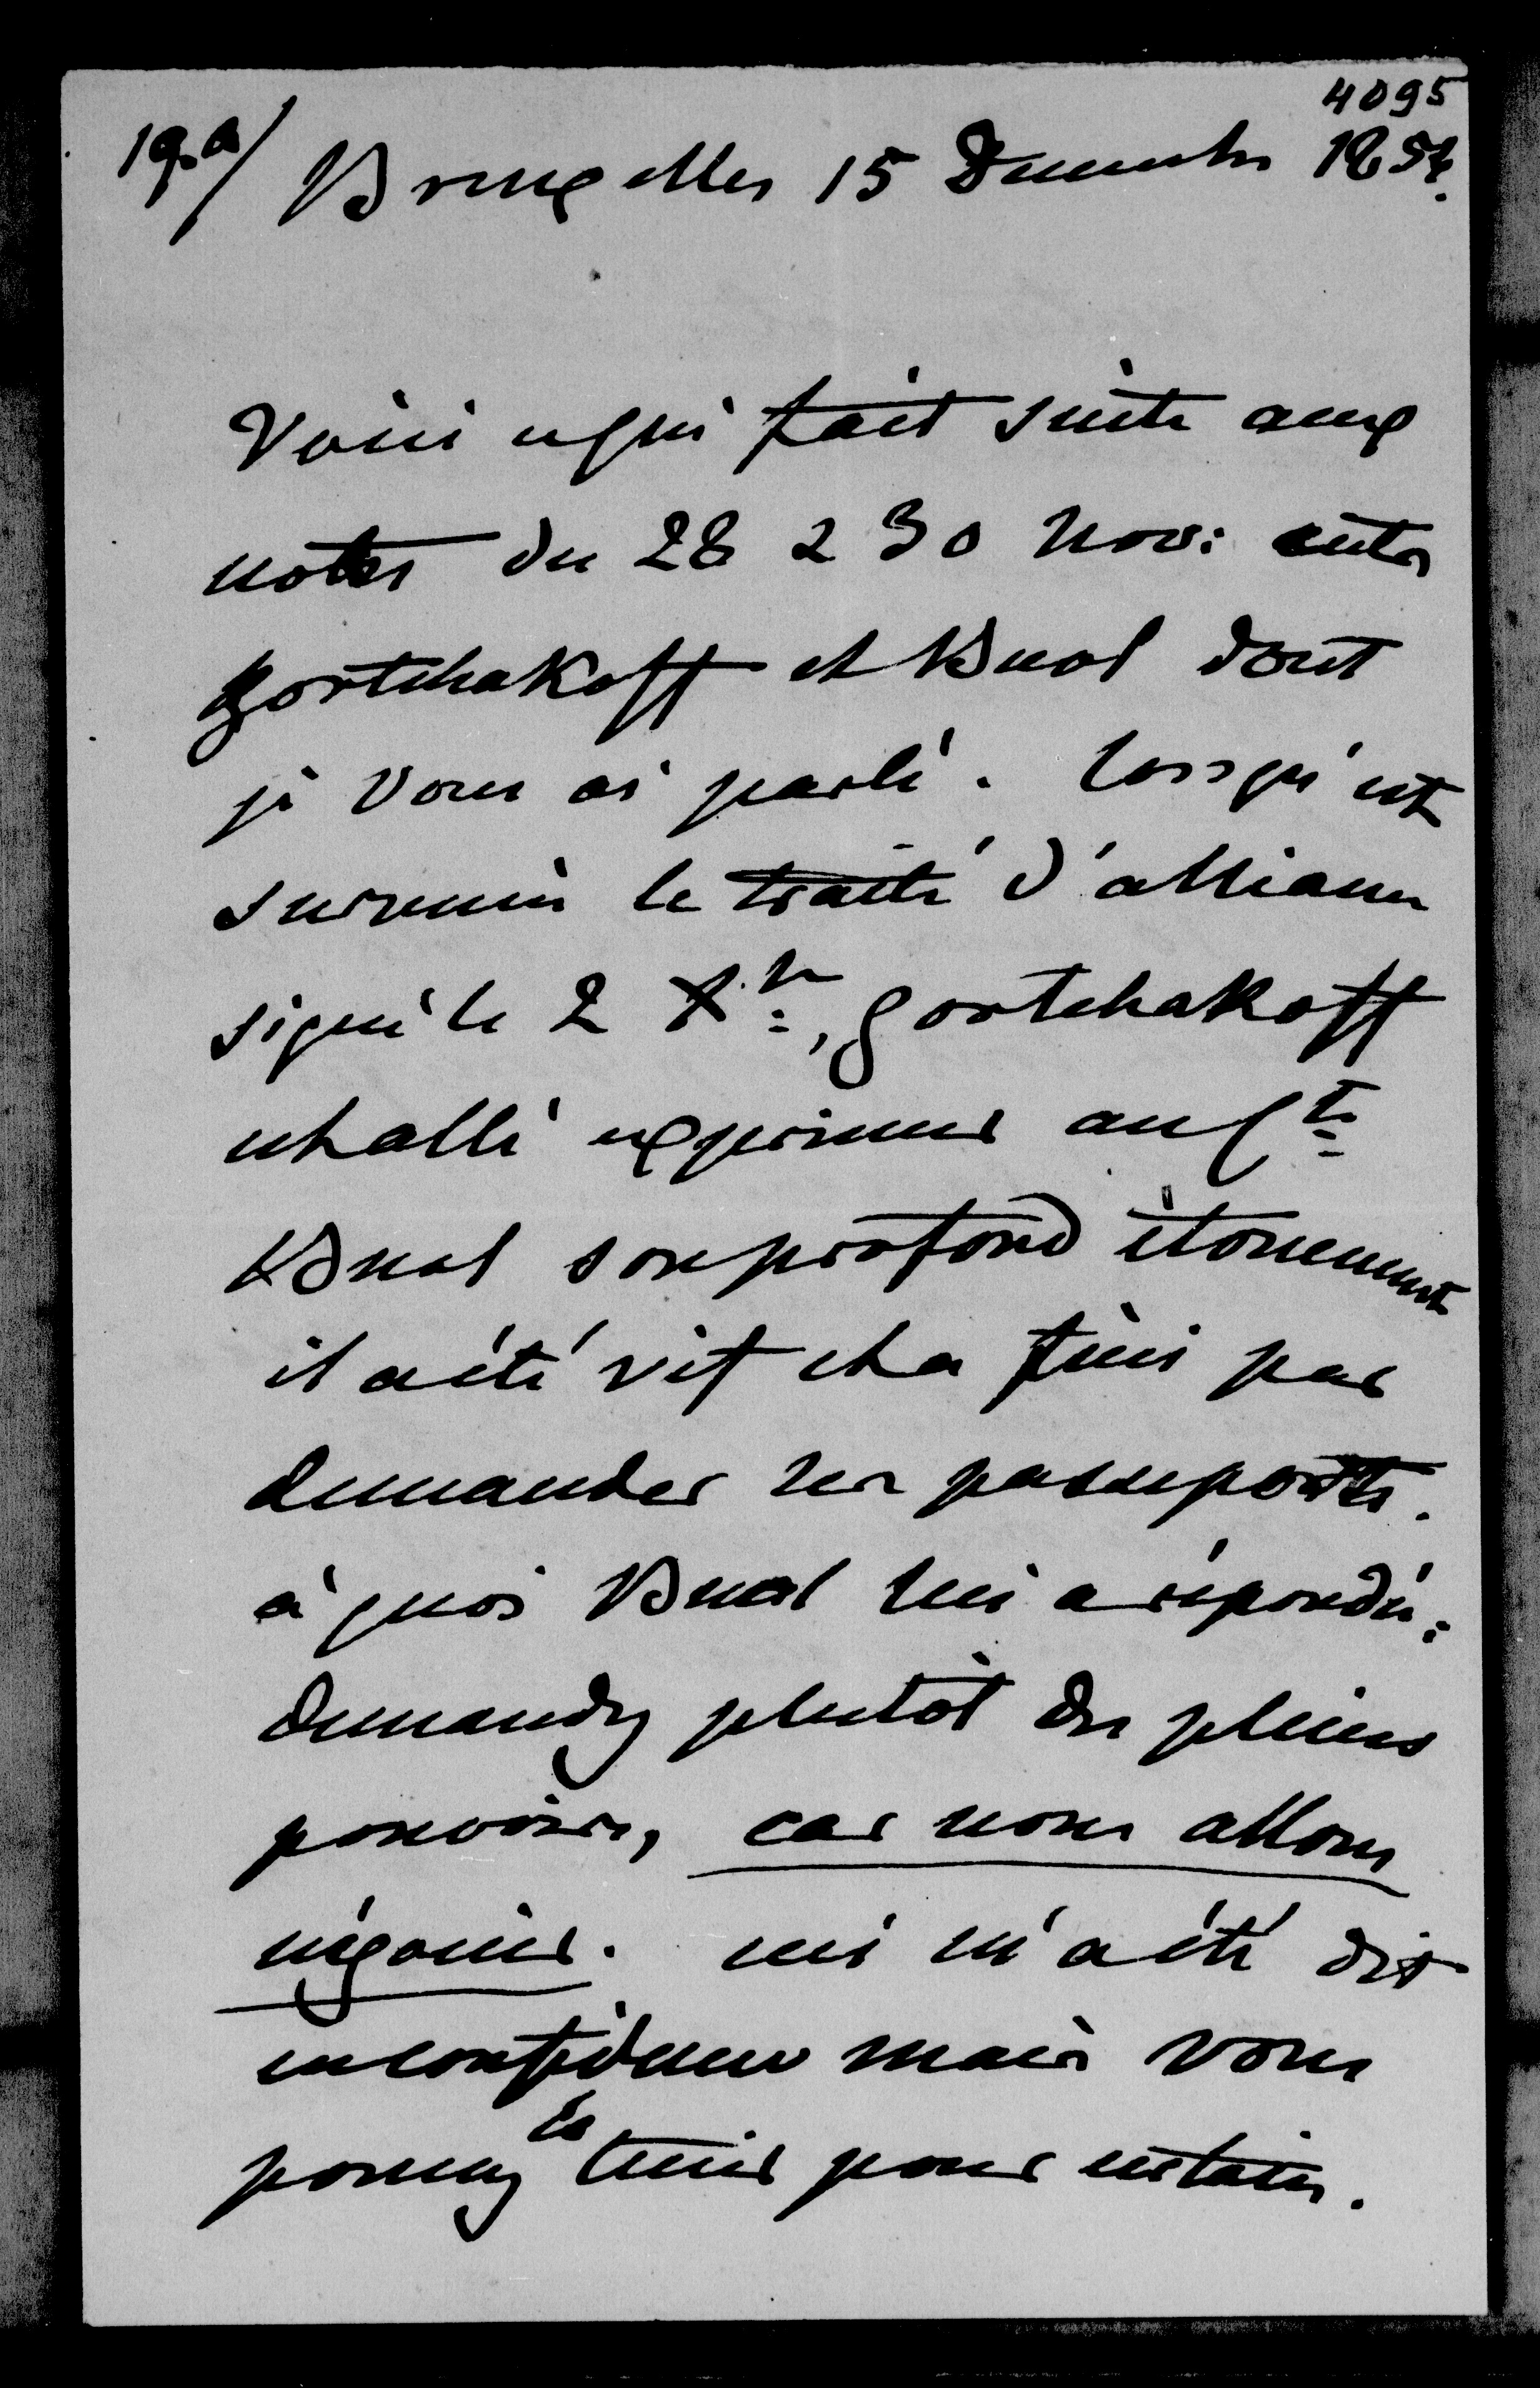 4095
19.a/ Bruxelles 15 Decembre 1854.
Voici ce qui fait suite aux
notes du 28 & 30 Nov: entre
Gortchakoff et Buol dont
je vous ai parlé. Lorsqu'est
survenu le traité d'alliance
signé le 2 Xbr, Gortchakoff
est allé exprimer au Cte
Buol son profond étonement
il a été vif et a fini par
demander ses passeports.
à quoi Buol lui a répondu:
demandez plutôt des pleins
pouvoirs, car nous allons
négocier. ceci m'a été dit
en confidence mais vous
pouvez le tenir pour certain.